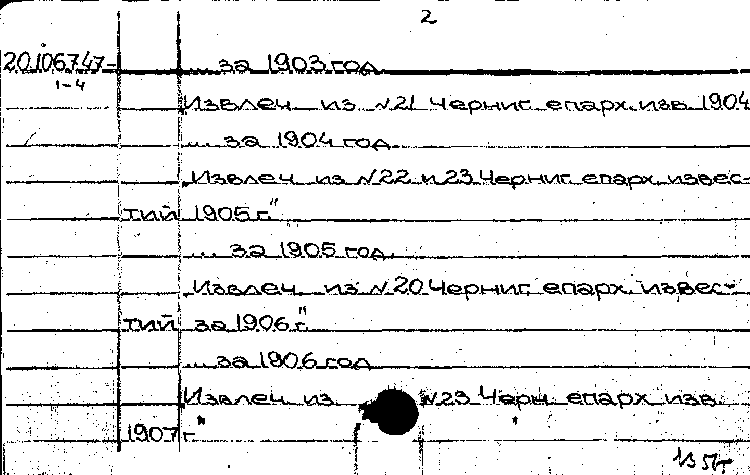 2
20.106747- ... за 1903 год
1-4
„Извлеч. из №21 Черниг. епарх. изв. 1904
... за 1904 год.
„Извлеч. из №22 и 23 Черниг. епарх. извес-
тий 1905 г."
... за 1905 год.
„Извлеч. из №20 Черниг. епарх. извес-
тий за 1906 г."
... за 1906 год
„Извлеч. из №23 Черн. епарх. изв.
1907 г."